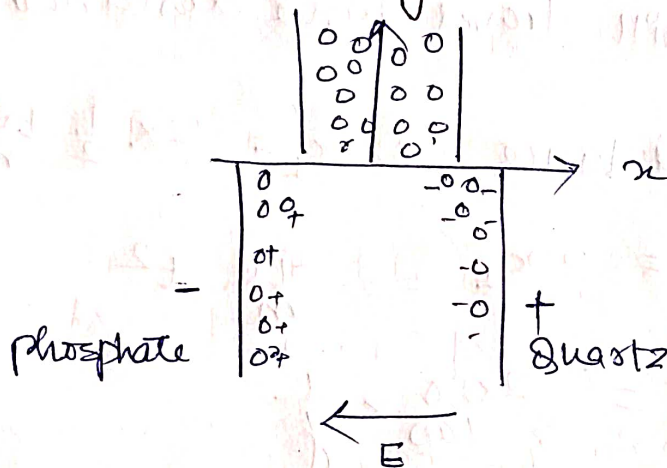 x
- +
phosphate Quartz
E